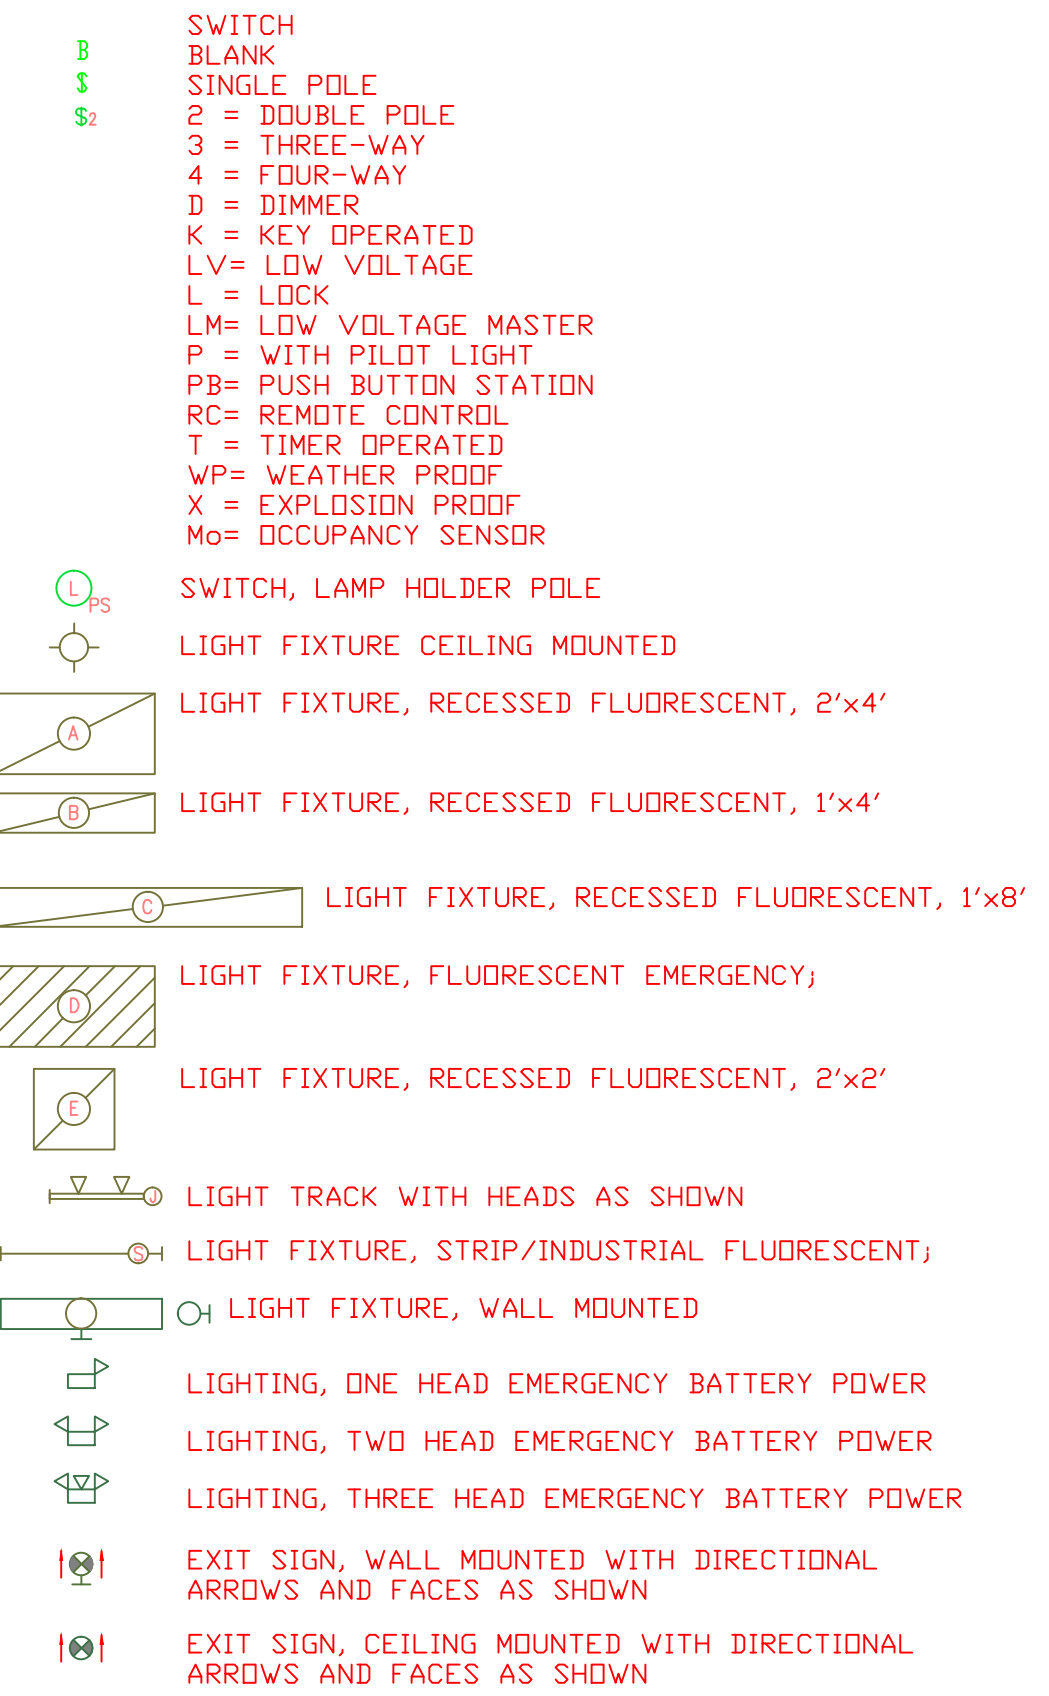 SWITCH
B BLANK
$ SINGLE POLE
$2 2 = DOUBLE POLE
3 = THREE-WAY
4 = FOUR-WAY
D = DIMMER
K = KEY OPERATED
LV= LOW VOLTAGE
L = LOCK
LM= LOW VOLTAGE MASTER
P = WITH PILOT LIGHT
PB= PUSH BUTTON STATION
RC= REMOTE CONTROL
T = TIMER OPERATED
WP= WEATHER PROOF
X = EXPLOSION PROOF
Mo= OCCUPANCY SENSOR
L PS SWITCH, LAMP HOLDER POLE
LIGHT FIXTURE CEILING MOUNTED
A LIGHT FIXTURE, RECESSED FLUORESCENT, 2'x4'
B LIGHT FIXTURE, RECESSED FLUORESCENT, 1'x4'
C LIGHT FIXTURE, RECESSED FLUORESCENT, 1'x8'
D LIGHT FIXTURE, FLUORESCENT EMERGENCY;
E LIGHT FIXTURE, RECESSED FLUORESCENT, 2'x2'
J LIGHT TRACK WITH HEADS AS SHOWN
S LIGHT FIXTURE, STRIP/INDUSTRIAL FLUORESCENT;
LIGHT FIXTURE, WALL MOUNTED
LIGHTING, ONE HEAD EMERGENCY BATTERY POWER
LIGHTING, TWO HEAD EMERGENCY BATTERY POWER
LIGHTING, THREE HEAD EMERGENCY BATTERY POWER
EXIT SIGN, WALL MOUNTED WITH DIRECTIONAL
ARROWS AND FACES AS SHOWN
EXIT SIGN, CEILING MOUNTED WITH DIRECTIONAL
ARROWS AND FACES AS SHOWN